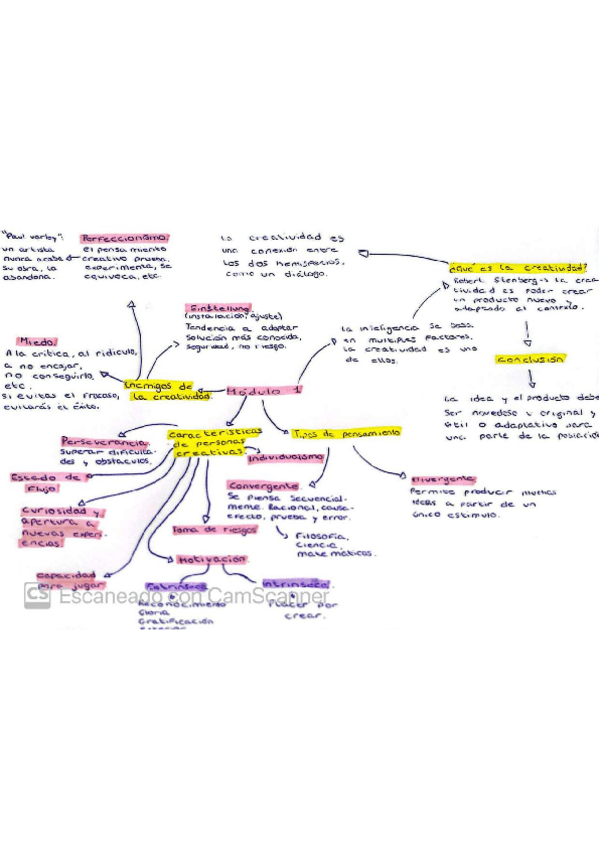 "Paul varley":
un artista
nunca acaba
su obra, la
abandona.
Perfeccionismo.
el pensamiento
creativo prueba,
experimenta, se
equivoca, etc.
La creatividad es
una conexión entre
los dos hemisferios,
como un diálogo.
¿Qué es la creatividad?
Robert Stenberg → la crea
tividad es poder crear
un producto nuevo y
adaptado al contexto.
Einstellung
(instalación, ajuste)
Tendencia a adoptar
solución más conocida,
seguridad, no riesgo.
La inteligencia se basa
en múltiples factores,
la creatividad es uno
de ellos.
Conclusión
La idea y el producto debe
ser novedoso y original y
útil o adaptativo para
una parte de la población
Miedo.
A la crítica, al ridículo,
a no encajar,
no conseguirlo,
etc.
si evitas el fracaso,
evitarás el éxito.
Enemigos de
la creatividad.
Módulo 1
Perseverancia.
superar dificulta-
des y obstáculos.
Características
de personas
creativas.
Tipos de pensamiento
Individualismo
Estado de
flujo.
Curiosidad y
apertura a
nuevas experi-
encias.
Capacidad
para jugar
Toma de riesgos
Motivación.
Extrínseca
Reconocimiento
Gloria
Gratificación
Intrínseca.
Placer por
crear.
Convergente.
Se piensa secuencial-
mente. Racional, causa-
efecto, prueba y error.
Filosofía,
ciencia,
matemáticas.
Divergente.
Permite producir muchas
ideas a partir de un
único estímulo.
CS Escaneado con CamScanner